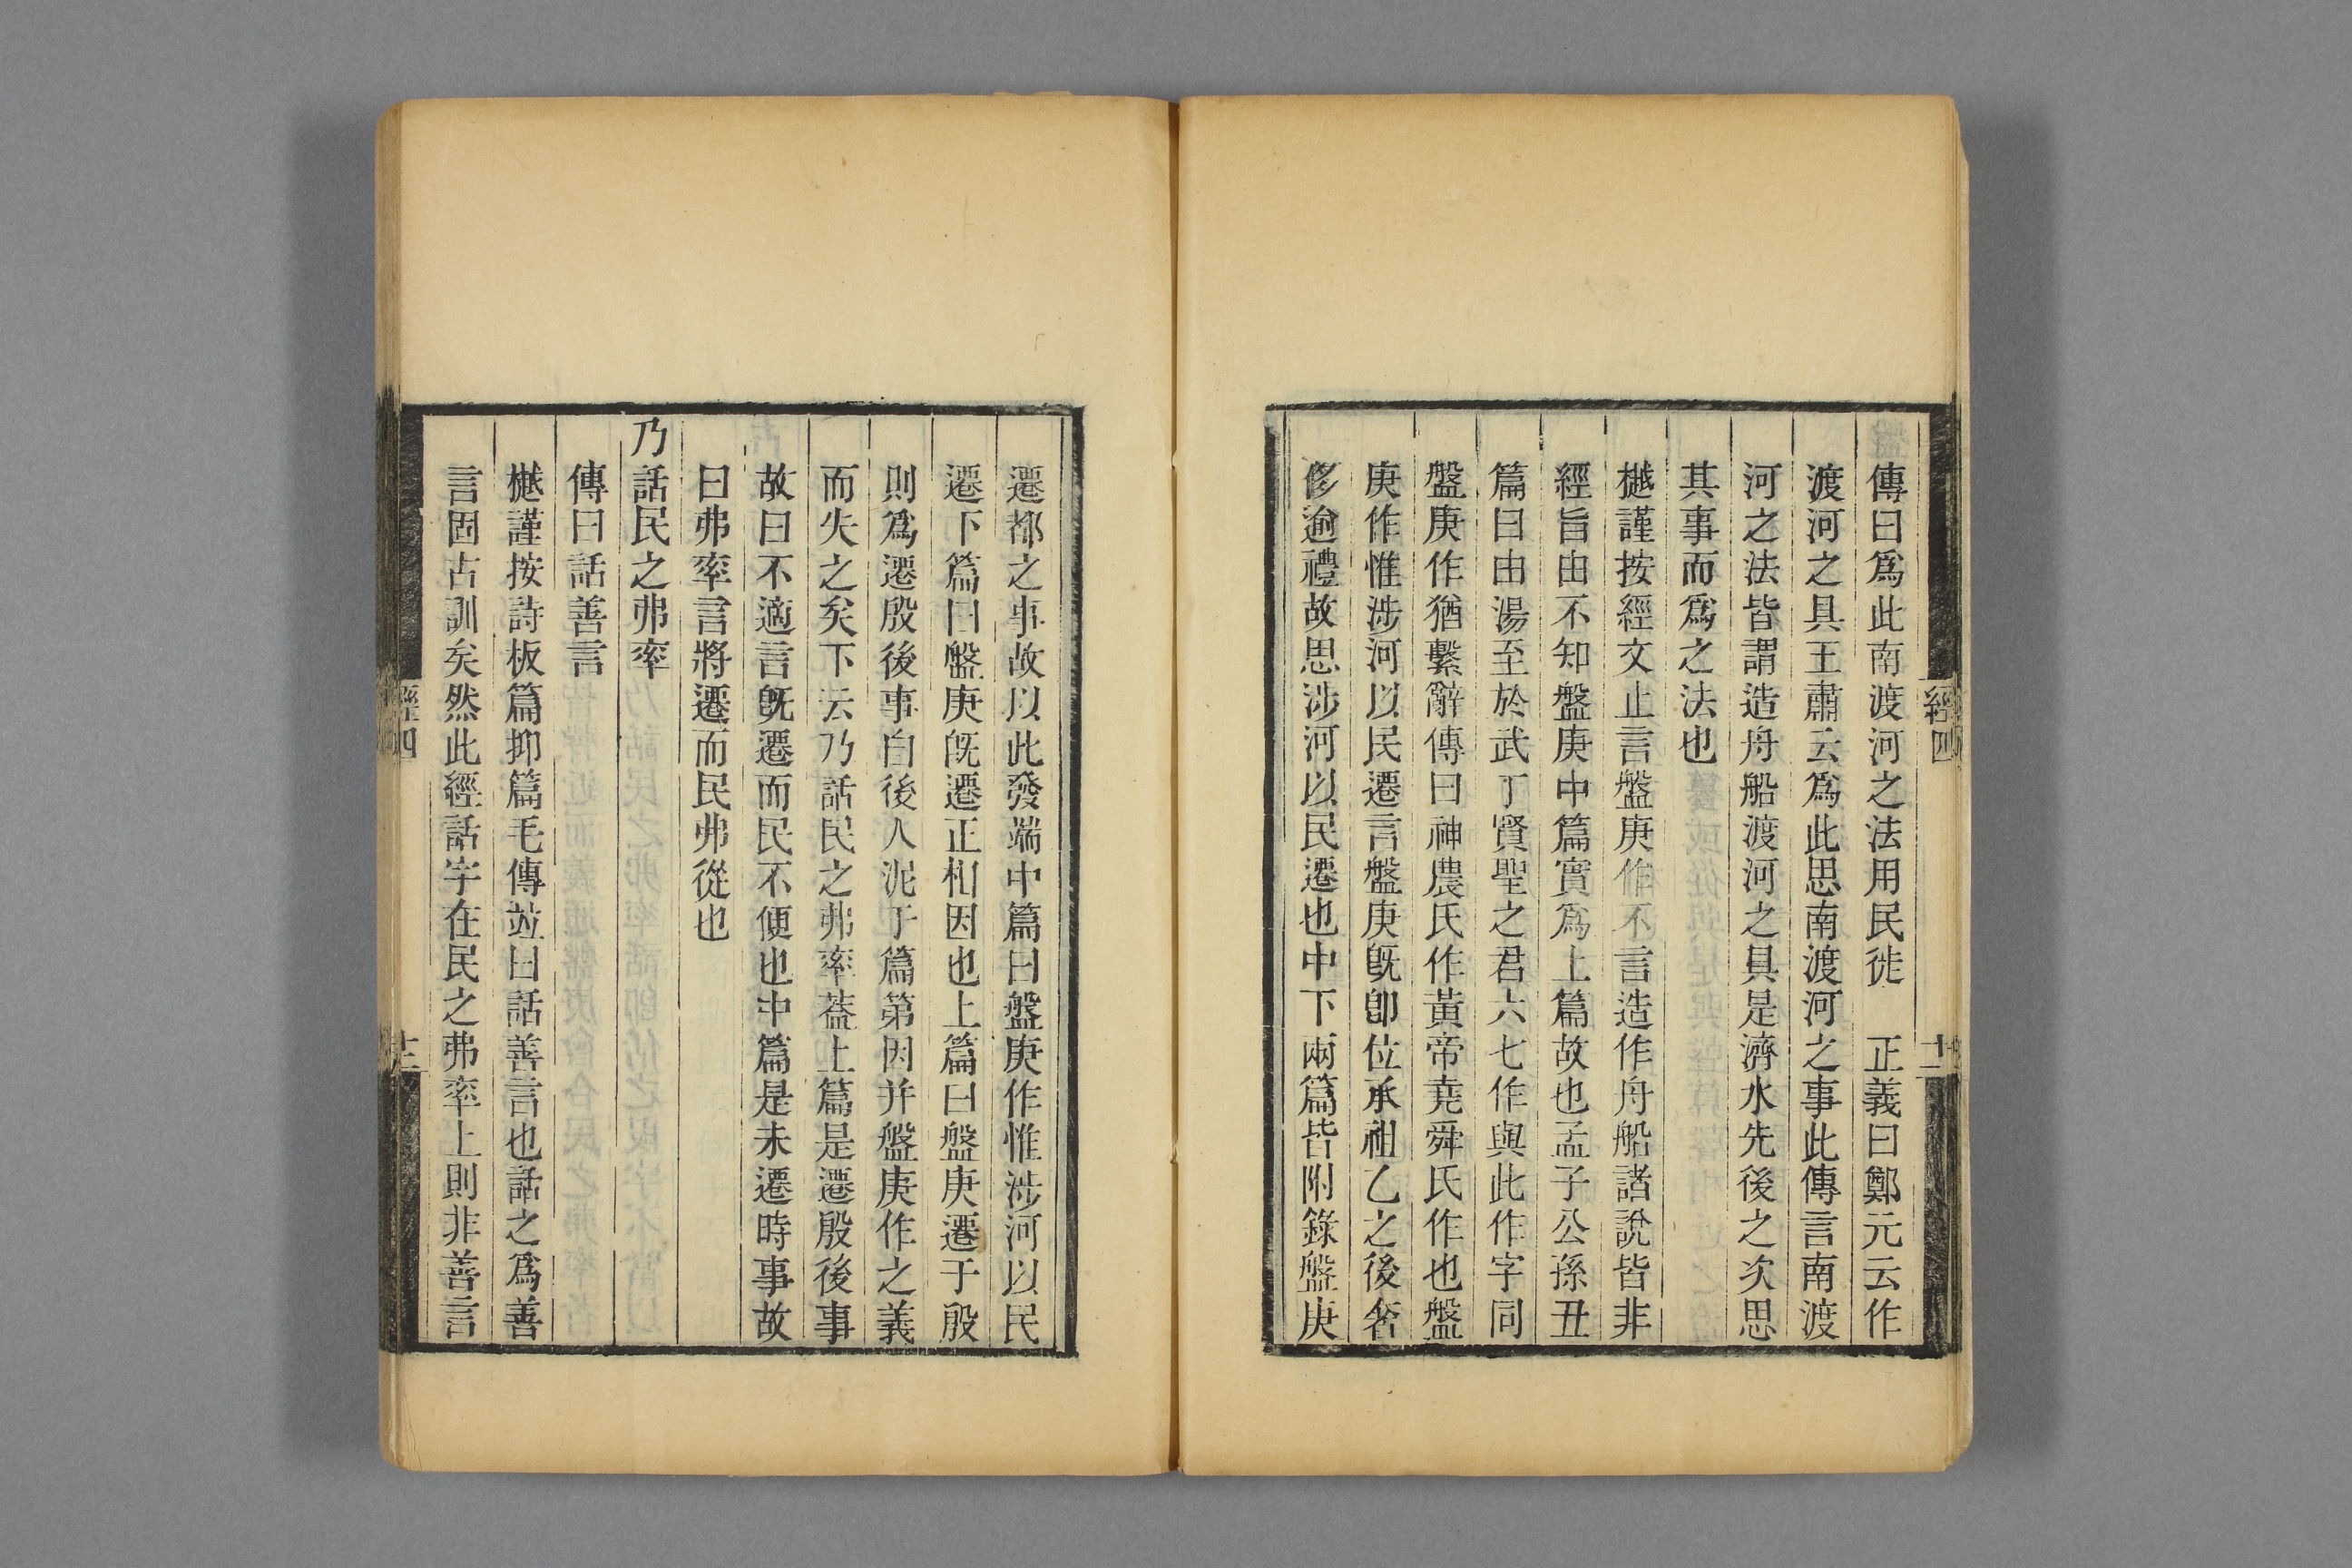 經四
十二
傳曰爲此南渡河之法用民徙　正義曰鄭元云作
渡河之具王肅云爲此思南渡河之事此傳言南渡
河之法皆謂造舟船渡河之具是濟水先後之次思
其事而爲之法也
樾謹按經文止言盤庚作不言造作舟船諸說皆非
經旨由不知盤庚中篇實爲上篇故也孟子公孫丑
篇曰由湯至於武丁賢聖之君六七作與此作字同
盤庚作猶繫辭傳曰神農氏作黃帝堯舜氏作也盤
庚作惟涉河以民遷言盤庚旣卽位承祖乙之後奢
侈逾禮故思涉河以民遷也中下兩篇皆附錄盤庚
遷都之事故以此發端中篇曰盤庚作惟涉河以民
遷下篇曰盤庚旣遷正相因也上篇曰盤庚遷于殷
則爲遷殷後事自後人泥于篇第因并盤庚作之義
而失之矣下云乃話民之弗率葢上篇是遷殷後事
故曰不適言旣遷而民不便也中篇是未遷時事故
曰弗率言將遷而民弗從也
乃話民之弗率
傳曰話善言
樾謹按詩板篇抑篇毛傳竝曰話善言也話之爲善
言固古訓矣然此經話字在民之弗率上則非善言
經四
十三